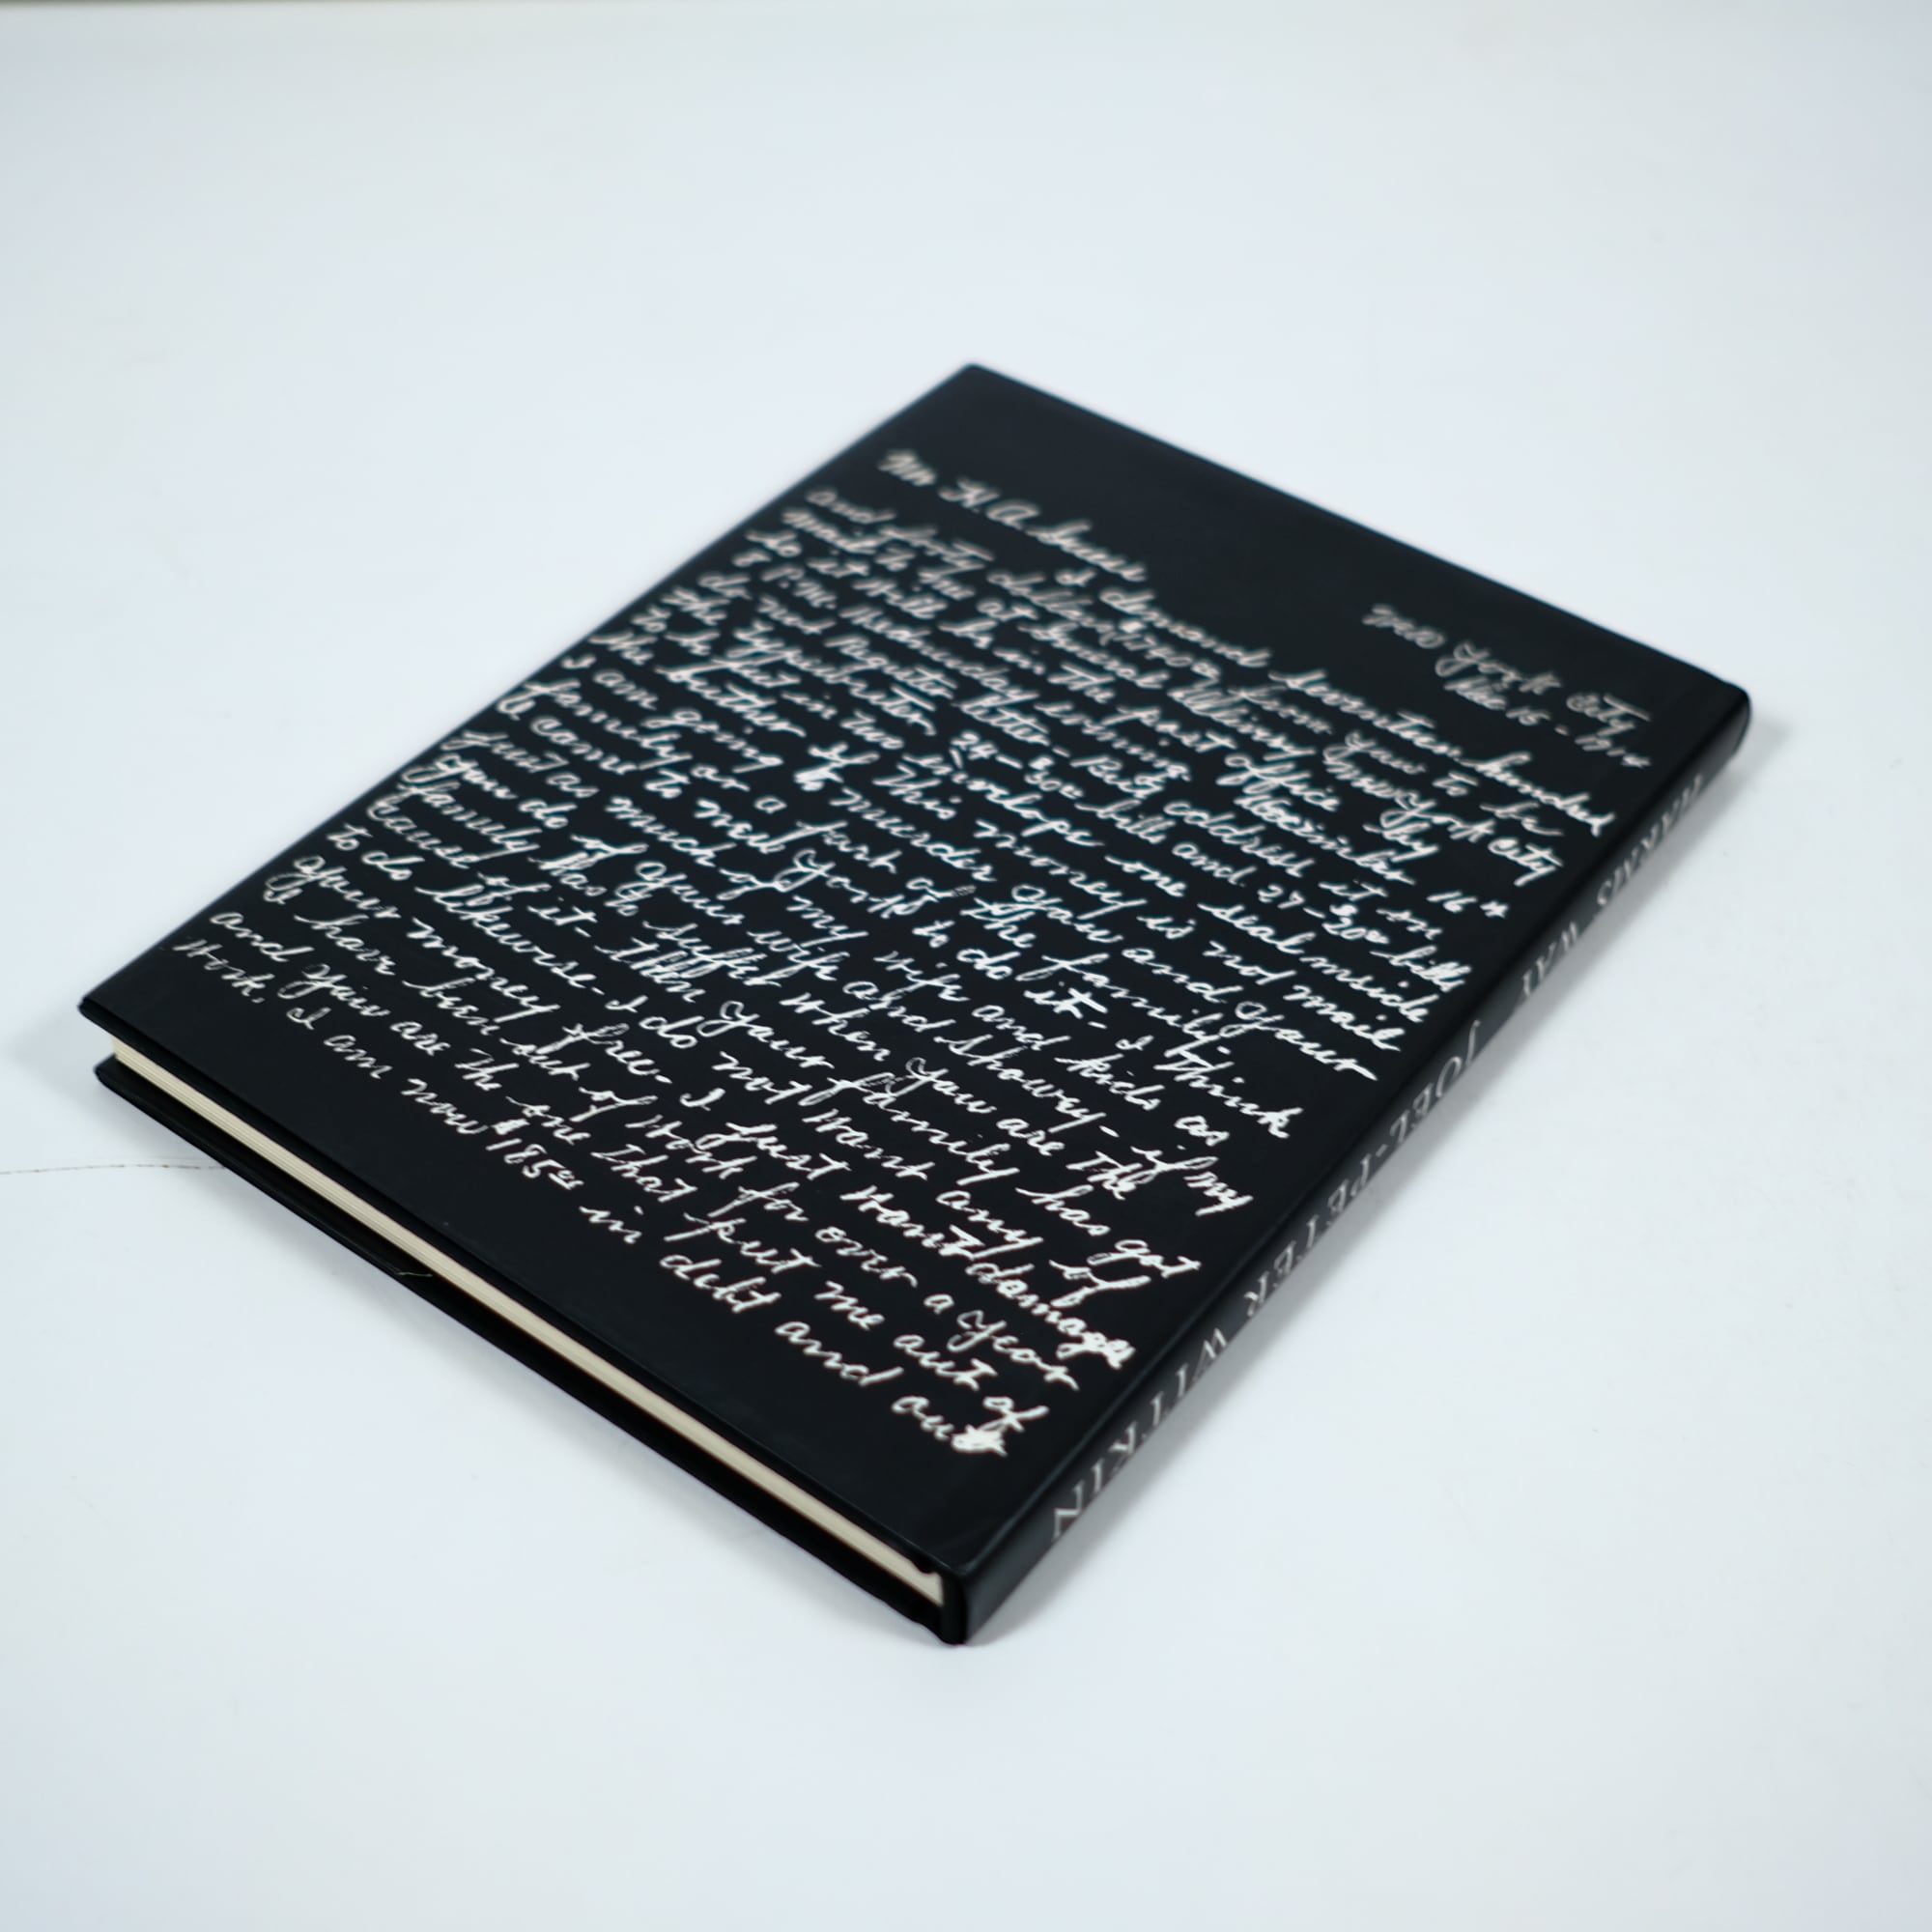 New York City
Dec 15 - 1914
Mr H. A.
I demand seventeen hundred
and forty dollars from you to be
mail to me at General Delivery New York City
So it will be in the post office by
8 P.M. Wednesday evening December 16th
do not register letter - Put address it on
the typewriter 24 - 30 bills and 27 - 20 bills
to be put in two envelope one seal inside
the nuther If this money is not mail
I am going to murder you and your
family or a part of the family.
I come to New York to do it - I think
just as much of my wife and kids as
you do of your wife and showey - if my
family has to suffer when you are the
cause of it - then your family has got
to do likewise - I do not want any of
your money free - I just want damages
I have been out of work for over a year
and you are the one that put me out of
work. I am now $185 in debt and out
HARMS WAY JOEL-PETER WITKIN